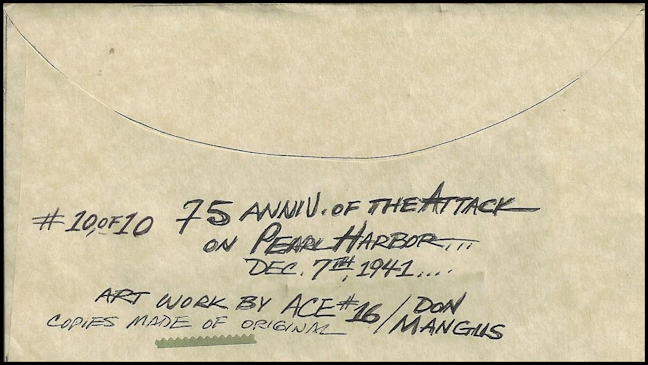 #10, OF 10 75 ANNIV. OF THE ATTACK
ON PEARL HARBOR...
DEC. 7TH, 1941....
ART WORK BY ACE #16 / DON MANGUS
COPIES MADE OF ORIGINAL